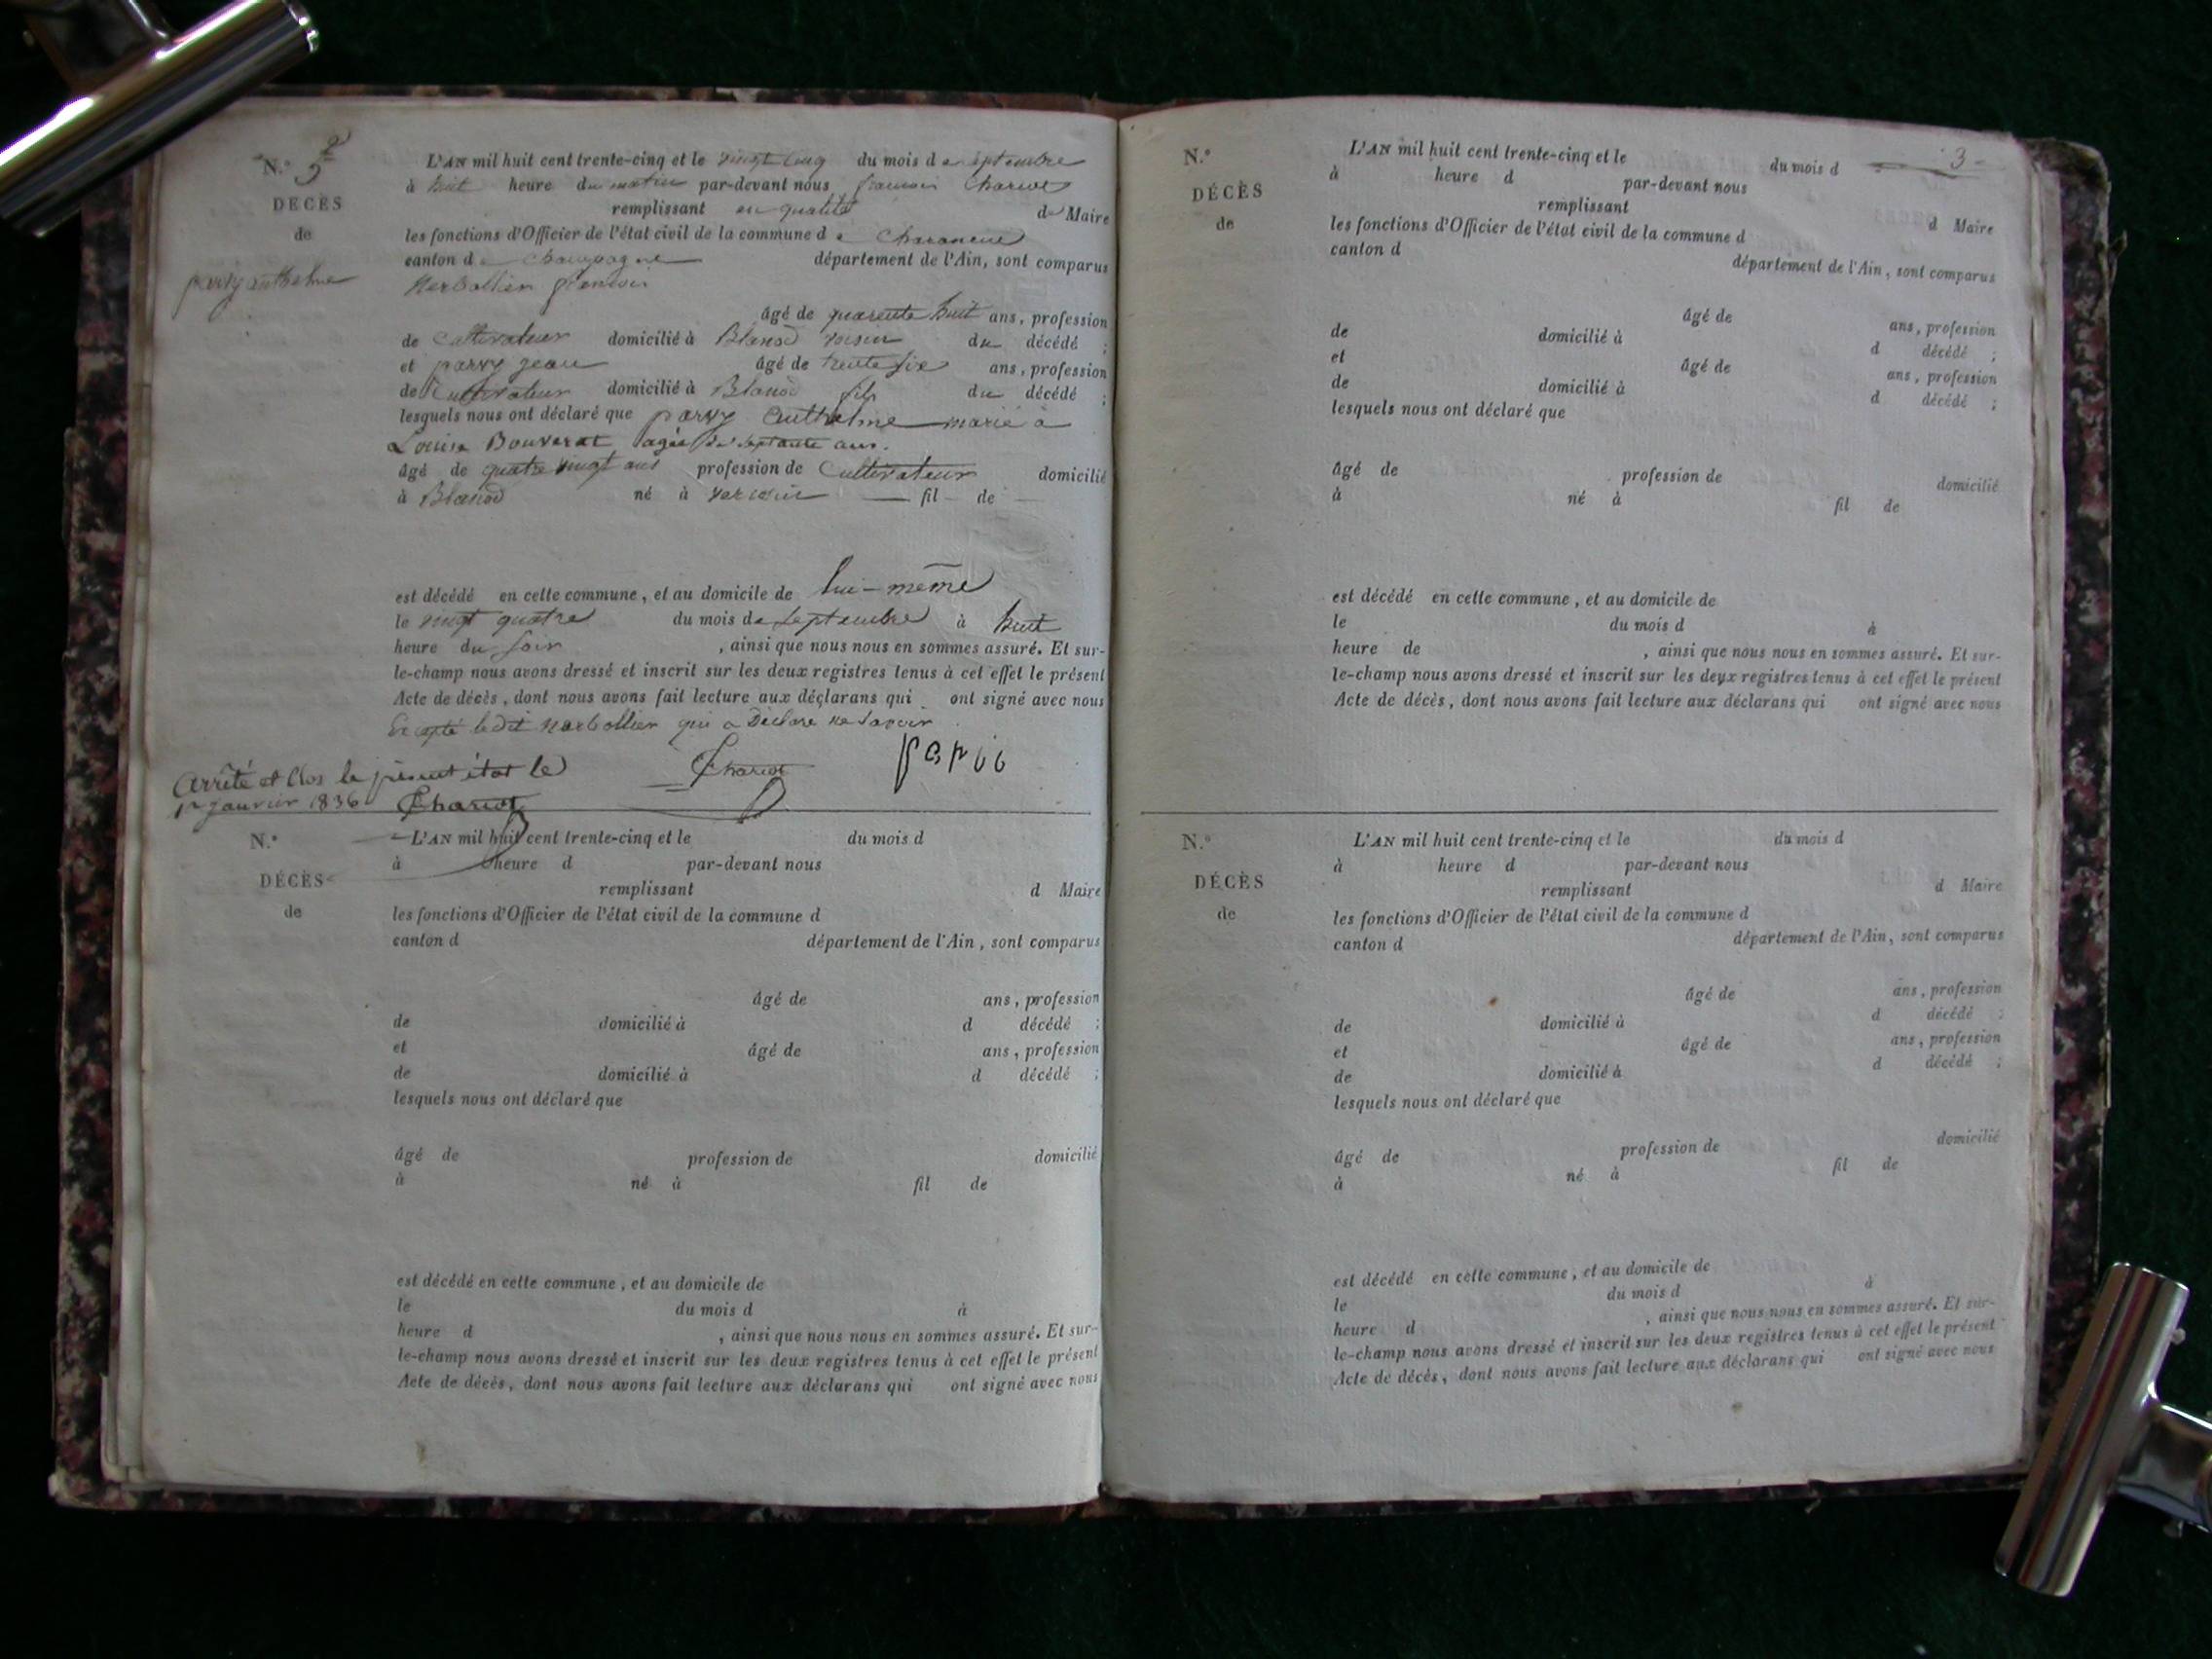 N.° 5
2
DÉCÈS
de
parvy anthelme
L'AN mil huit cent trente-cinq et le vingt cinq du mois de septembre
à huit heure du matin par-devant nous francois Charvet
remplissant en qualité de Maire
les fonctions d'Officier de l'état civil de la commune de
canton de Champagne département de l'Ain, sont comparus
âgé de quarente huit ans, profession
de Cultivateur domicilié à Blanod voisin du décédé ;
et parvy jean âgé de trente six ans, profession
de Cultivateur domicilié à Blanod fils du décédé ;
lesquels nous ont déclaré que parvy Anthelme marié à
Louise Bouverat agée de septante ans.
âgé de quatre vingt ans profession de Cultivateur domicilié
à Blanod né à fil de
est décédé en cette commune, et au domicile de lui-même
le vingt quatre du mois de Septembre à huit
heure du soir , ainsi que nous nous en sommes assuré. Et sur-
le-champ nous avons dressé et inscrit sur les deux registres tenus à cet effet le présent
Acte de décès, dont nous avons fait lecture aux déclarans qui ont signé avec nous
Excepté ledit qui a Déclaré ne Savoir
Arrêté et Clos le présent état le
1er Janvier 1836
N.°
DÉCÈS
de
L'AN mil huit cent trente-cinq et le du mois d
à heure d par-devant nous
remplissant d Maire
les fonctions d'Officier de l'état civil de la commune d
canton d département de l'Ain, sont comparus
âgé de ans, profession
de domicilié à d décédé ;
et âgé de ans, profession
de domicilié à d décédé ;
lesquels nous ont déclaré que
âgé de profession de domicilié
à né à fil de
est décédé en cette commune, et au domicile de
le du mois d à
heure d , ainsi que nous nous en sommes assuré. Et sur-
le-champ nous avons dressé et inscrit sur les deux registres tenus à cet effet le présent
Acte de décès, dont nous avons fait lecture aux déclarans qui ont signé avec nous
3
N.°
DÉCÈS
de
L'AN mil huit cent trente-cinq et le du mois d
à heure d par-devant nous
remplissant d Maire
les fonctions d'Officier de l'état civil de la commune d
canton d département de l'Ain, sont comparus
âgé de ans, profession
de domicilié à d décédé ;
et âgé de ans, profession
de domicilié à d décédé ;
lesquels nous ont déclaré que
âgé de profession de domicilié
à né à fil de
est décédé en cette commune, et au domicile de
le du mois d à
heure de , ainsi que nous nous en sommes assuré. Et sur-
le-champ nous avons dressé et inscrit sur les deux registres tenus à cet effet le présent
Acte de décès, dont nous avons fait lecture aux déclarans qui ont signé avec nous
N.°
DÉCÈS
de
L'AN mil huit cent trente-cinq et le du mois d
à heure d par-devant nous
remplissant d Maire
les fonctions d'Officier de l'état civil de la commune d
canton d département de l'Ain, sont comparus
âgé de ans, profession
de domicilié à d décédé ;
et âgé de ans, profession
de domicilié à d décédé ;
lesquels nous ont déclaré que
âgé de profession de domicilié
à né à fil de
est décédé en cette commune, et au domicile de
le du mois d à
heure d , ainsi que nous nous en sommes assuré. Et sur-
le-champ nous avons dressé et inscrit sur les deux registres tenus à cet effet le présent
Acte de décès, dont nous avons fait lecture aux déclarans qui ont signé avec nous